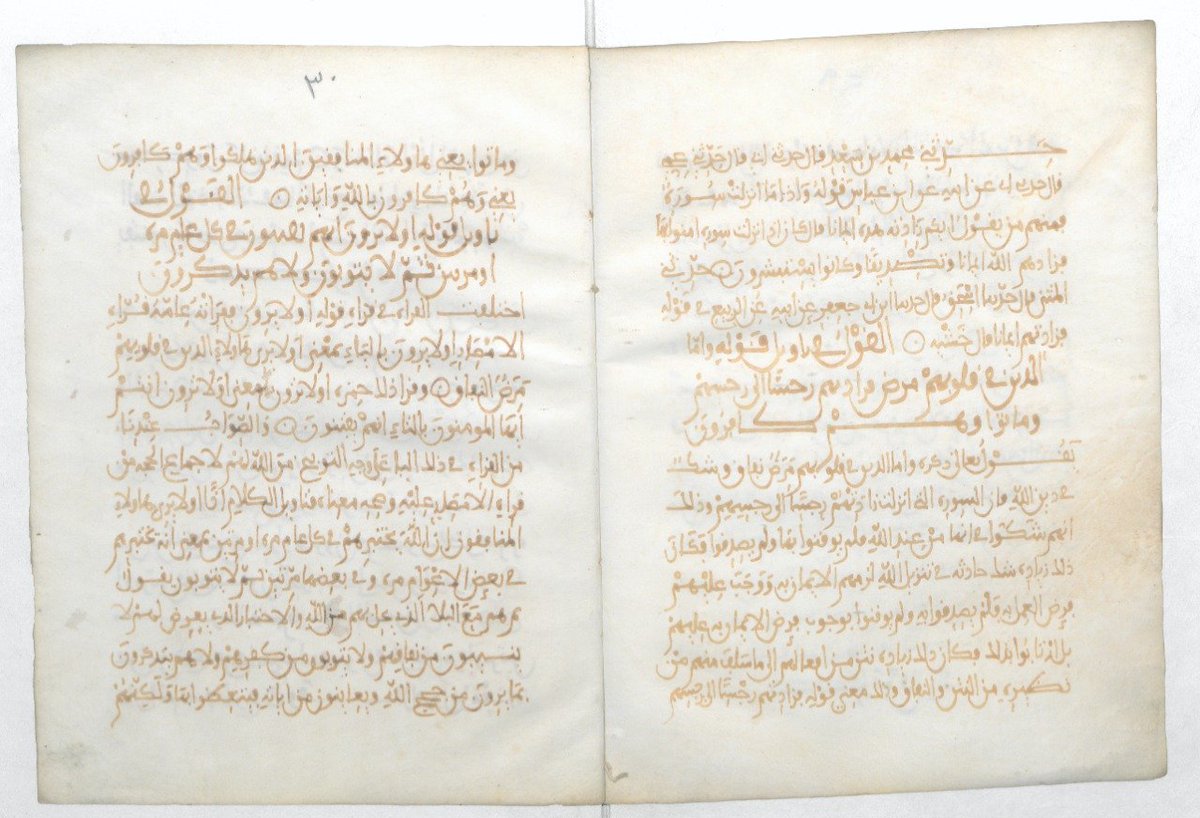 حدثني محمد بن سعد قال حدثني ابي قال حدثني عمي
قال حدثني ابي عن ابيه عن ابن عباس قوله واذا ما انزلت سورة
فمنهم من يقول ايكم زادته هذه ايمانا قال كان اذا نزلت سورة امنوا بها
فزادهم الله ايمانا وتصديقا وكانوا يستبشرون حدثني
المثنى قال حدثنا اسحق قال حدثنا ابن ابي جعفر عن ابيه عن الربيع في قوله
فزادتهم ايمانا قال خشية القول في تاويل قوله واما
الذين في قلوبهم مرض فزادتهم رجسا الى رجسهم
وماتوا وهم كافرون
يقول تعالى ذكره واما الذين في قلوبهم مرض نفاق وشك
في دين الله فان السورة التي انزلت زادتهم رجسا الى رجسهم وذلك
انهم شكوا في انها من عند الله فلم يوقنوا بها ولم يصدقوا فكان
ذلك زيادة شك حادثة في تنزيل الله لزمهم الايمان به ووجب عليهم
فرض العمل به فلم يصدقوا به ولم يوقنوا بوجوب فرض الايمان به عليهم
بل ارتابوا بذلك فكان ذلك زيادة نتن من افعالهم الى ما سلف منهم من
نظيره من النتن والنفاق وذلك معنى قوله فزادتهم رجسا الى رجسهم
٣٠
وماتوا يعني هاولاء المنافقين الذين هلكوا وهم كافرون
يعني وهم كافرون بالله واياته القول في
تاويل قوله اولا ترون انهم يفتنون في كل عام مرة
او مرتين ثم لا يتوبون ولا هم يذكرون
اختلفت القراء في قراءة قوله اولا يرون فقراته عامة قراء
الامصار اولا يرون بالياء بمعنى اولا يرى هاولاء الذين في قلوبهم
مرض النفاق وقرا ذلك حمزة اولا ترون بمعنى اولا ترون انتم
ايها المومنون بالتاء انهم يفتنون والصواب عندنا
من القراءة في ذلك الياء على وجه التوبيخ من الله لهم لاجماع الحجة من
قراء الامصار عليه وصحة معناه فتاويل الكلام اذا اولا يرى هاولاء
المنافقون ان الله يختبرهم في كل عام مرة او مرتين بمعنى انه يختبرهم
في بعض الاعوام مرة وفي بعضها مرتين ثم لا يتوبون يقول
ثم هم مع البلاء الذي يحل بهم من الله والاختبار الذي يعرض لهم لا
ينيبون من نفاقهم ولا يتوبون من كفرهم ولا هم يتذكرون
بما يرون من حجج الله ويعاينون من اياته فيتعظوا بها ولكنهم